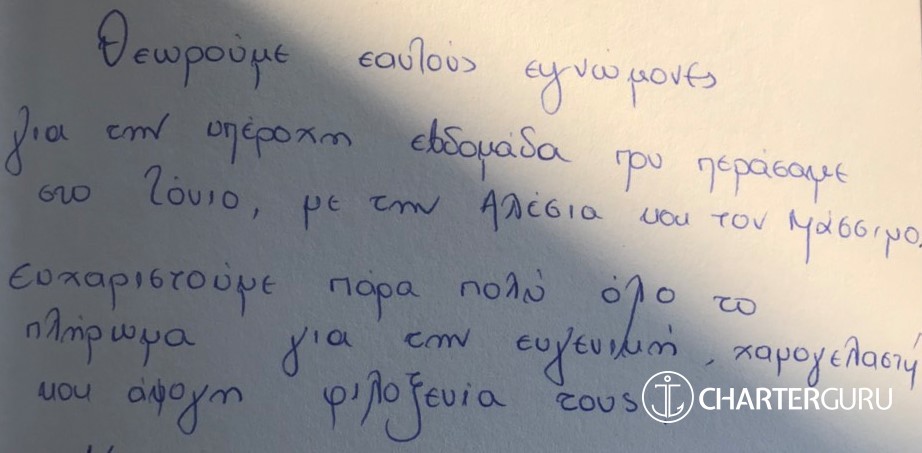 Θεωρούμε εαυτούς ευγνώμονες
για την υπέροχη εβδομάδα που περάσαμε
στο Ιόνιο, με την Αλέσια και τον Μάσσιμο.
Ευχαριστούμε πάρα πολύ όλο το
πλήρωμα για την ευγενική, χαμογελαστή
και άψογη φιλοξενία τους
CHARTERGURU